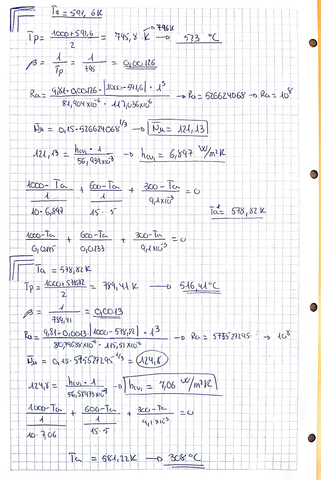 Ta = 591,6K
Tp = 1000+591,6 / 2 = 795,8 K → 796K → 523 °C
β = 1/Tp = 1/795 = 0,00126
Ra = 9,81·0,00126·|1000-591,6|·1³ / 81,904x10⁻⁶·117,036x10⁻⁶ → Ra = 526624068 → Ra = 10⁸
Nu = 0,15·526624068^1/3 → Nu = 121,13
121,13 = hcv1·1 / 56,939x10⁻³ → hcv1 = 6,897 W/m²K
1000-Ta / (1/10·6,897) + 600-Ta / (1/15·5) + 300-Ta / 9,1x10⁻³ = 0
Ta² = 578,82K
1000-Ta / 0,0145 + 600-Ta / 0,0133 + 300-Ta / 9,1x10⁻³ = 0
Ta = 578,82K
Tp = 1000+578,82 / 2 = 789,41 K → 516,41 °C
β = 1/789,41 = 0,0013
Ra = 9,81·0,0013·|1000-578,82|·1³ / → Ra = → 10⁸
Nu = 0,15· ^1/3 = 124,8
124,8 = hcv1·1 / → hcv1 = 7,06 W/m²K
1000-Ta / (1/10·7,06) + 600-Ta / (1/15·5) + 300-Ta / 9,1x10⁻³ = 0
Ta = 581,22K → 308 °C